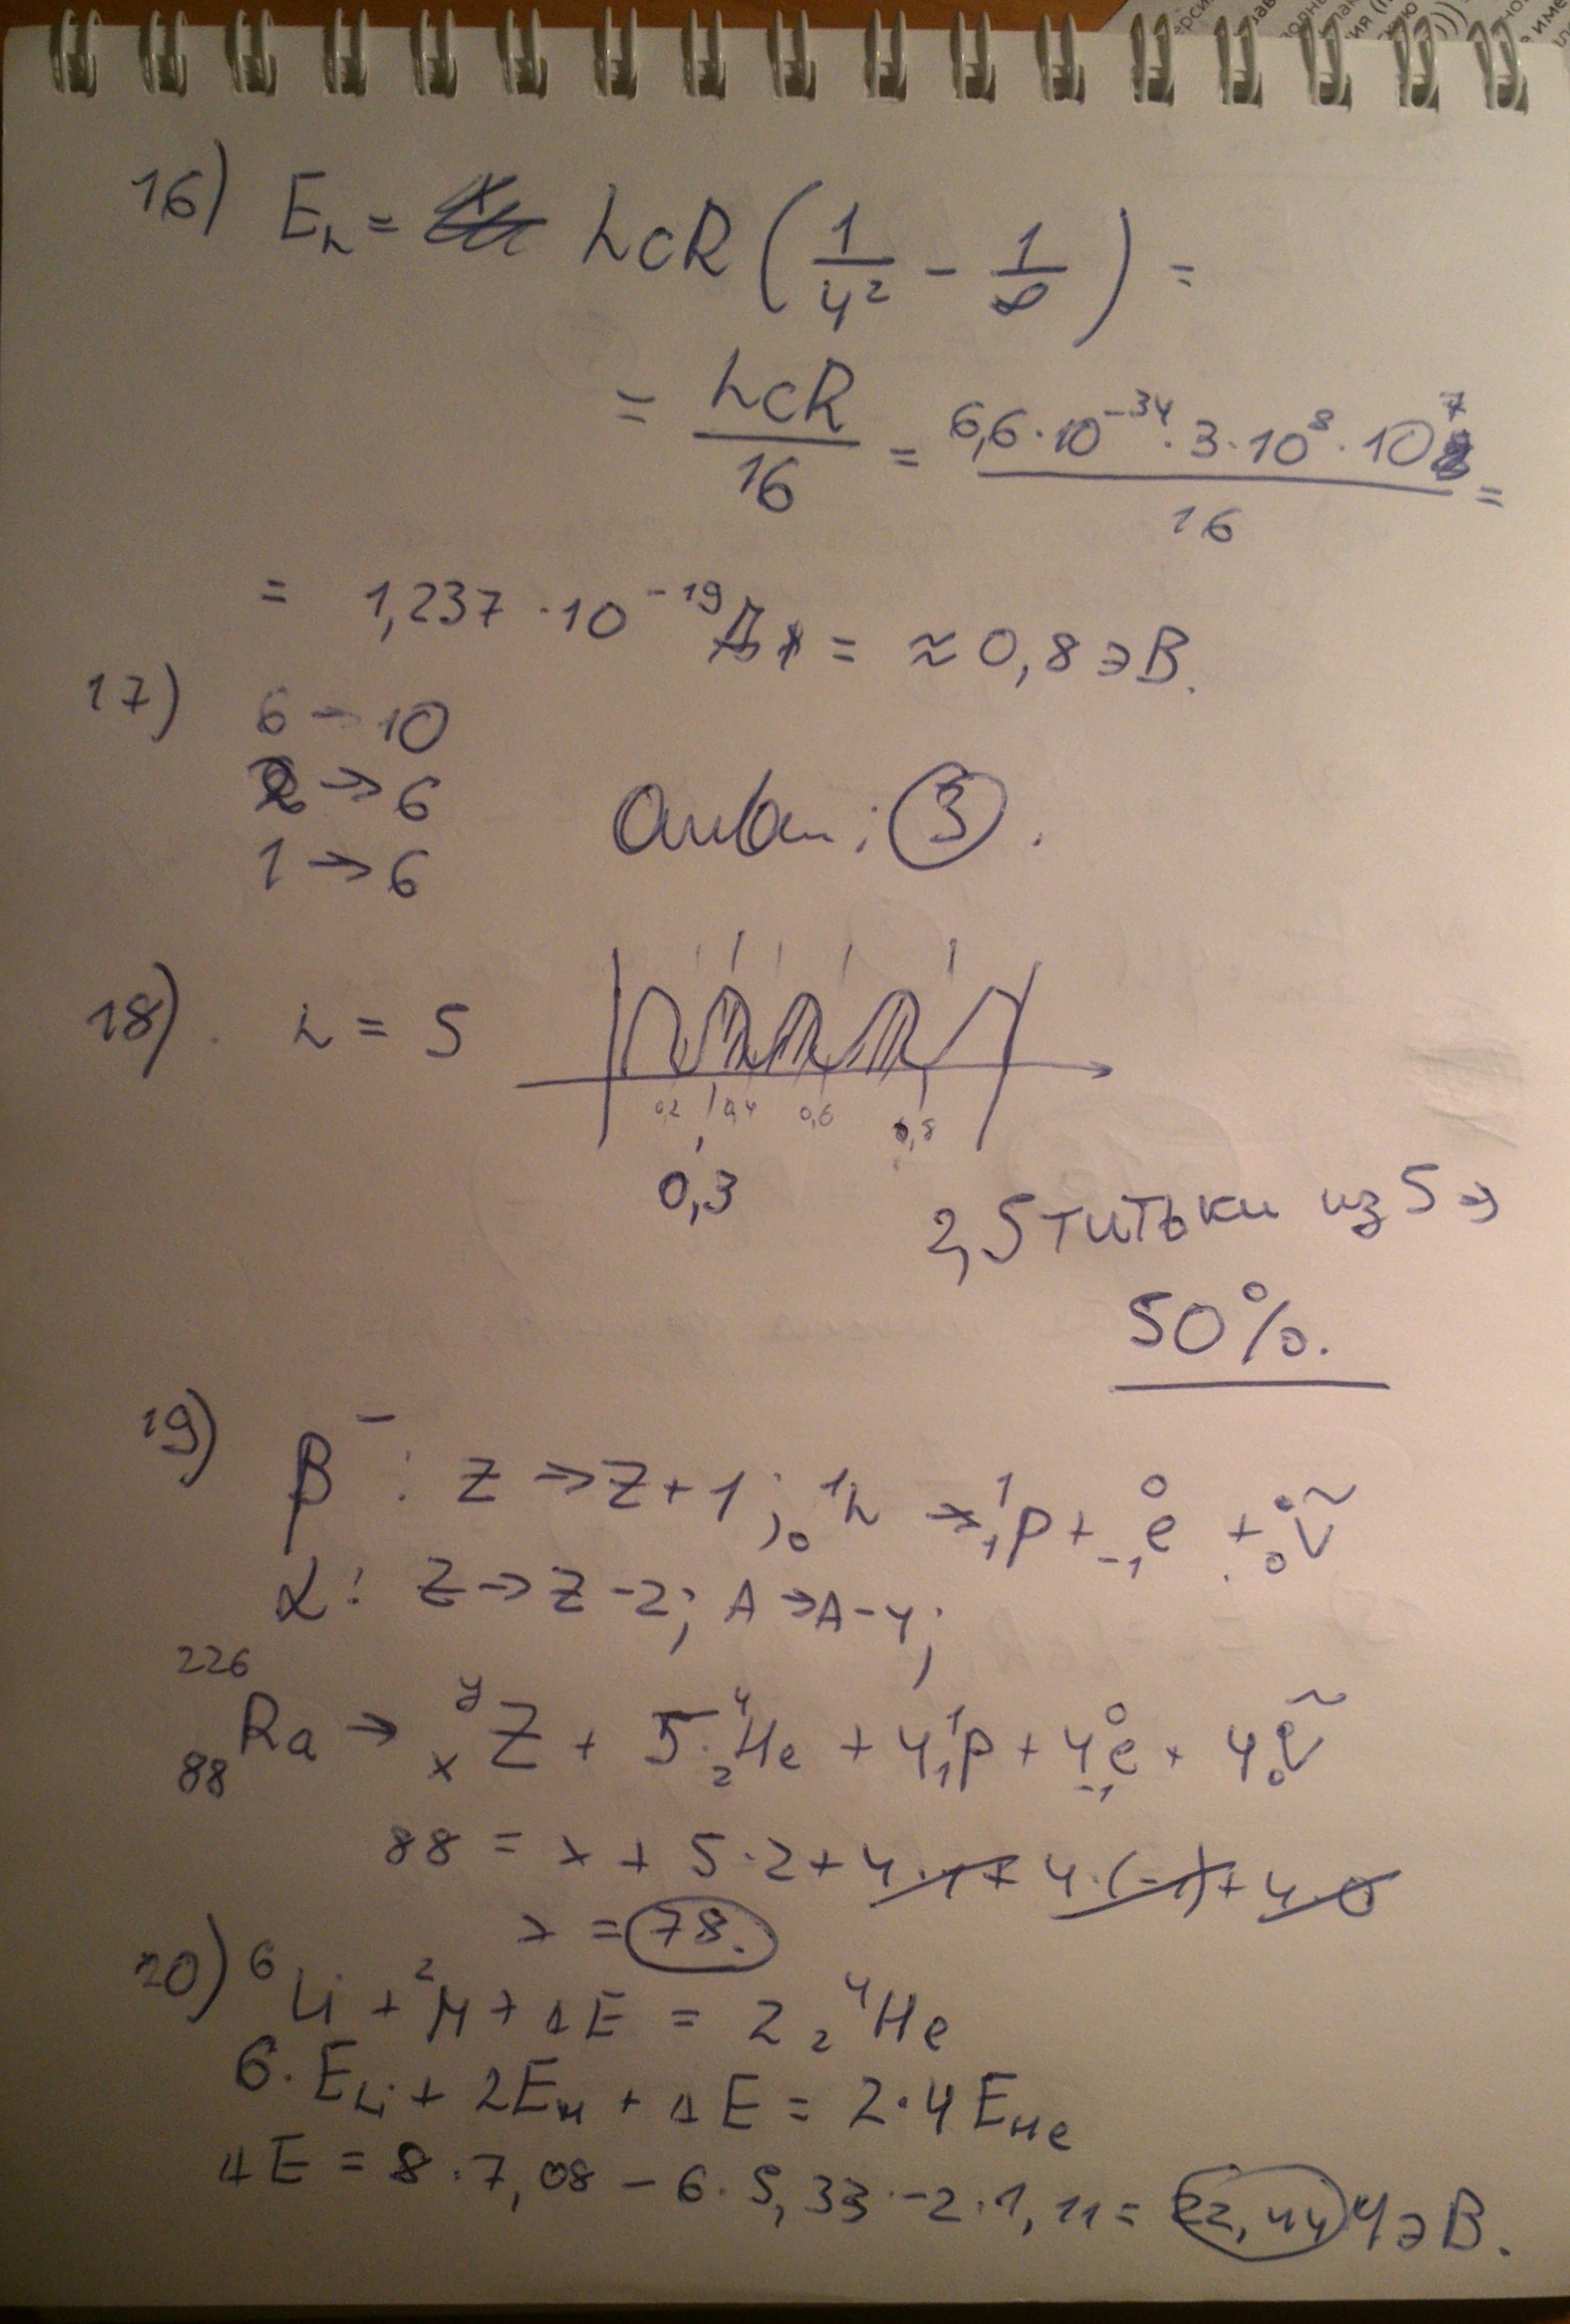 16) Eₙ = hcR (1/4² - 1/∞) =
= hcR/16 = 6,6·10⁻³⁴·3·10⁸·10⁷/16 =
= 1,237·10⁻¹⁹ Дж = ≈ 0,8 эВ.
17) 6 – 10
2 → 6
1 → 6
Ответ: 3.
18). n = 5
0,2 0,4 0,6 0,8
0,3
2,5 титьки из 5 →
50%.
19) β⁻: Z → Z+1; ¹₀n → ¹₁p + ⁰₋₁e + ⁰₀ν̃
α: Z → Z-2; A → A-4;
²²⁶₈₈Ra → ʸₓZ + 5·⁴₂He + 4¹₁p + 4⁰₋₁e + 4⁰₀ν̃
88 = x + 5·2 + 4·1 + 4·(-1) + 4·0
x = 78.
20) ⁶Li + ²H + ΔE = 2 ⁴₂He
6·E_Li + 2E_H + ΔE = 2·4E_He
ΔE = 8·7,08 - 6·5,33 - 2·1,11 = 22,44 МэВ.